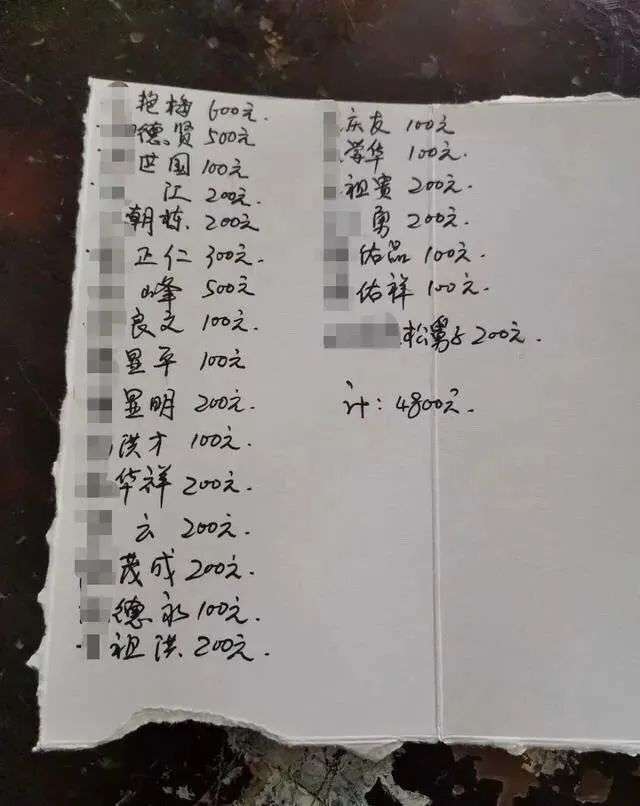 艳梅 600元.
德贤 500元
世国 100元
江 200元.
朝栋 200元
正仁 300元.
峰 500元
良文 100元.
显平 100元
显明 200元.
洪才 100元.
华祥 200元.
云 200元.
茂成 200元.
德永 100元.
祖洪 200元.
庆友 100元
荣华 100元.
祖贵 200元.
勇 200元.
佑品 100元.
佑祥 100元.
松舅子 200元.
计: 4800元.